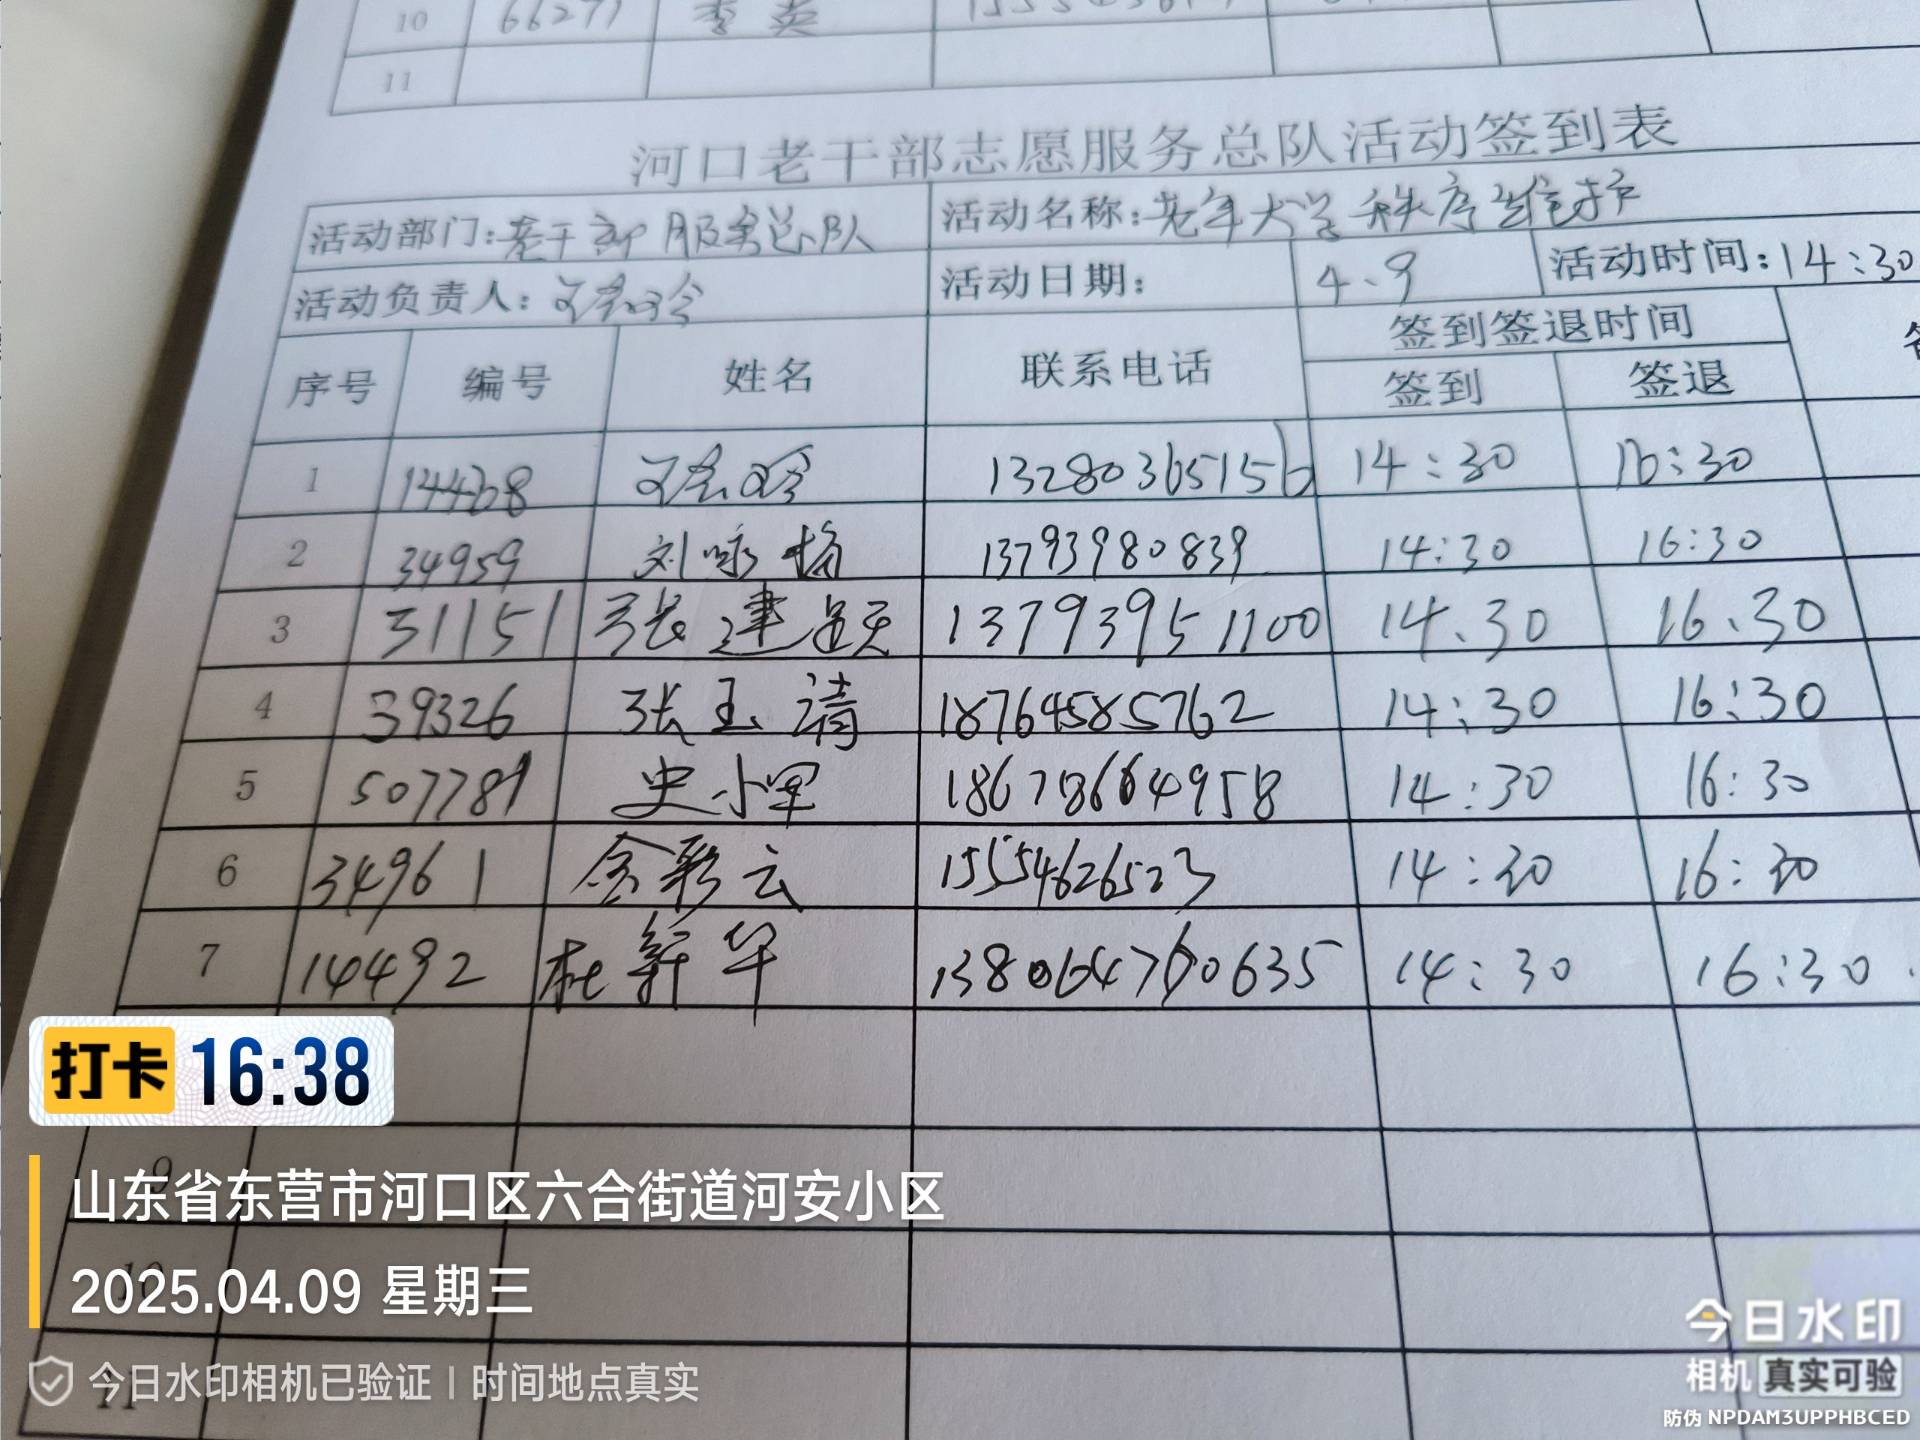 10 66271 李英
11
河口老干部志愿服务总队活动签到表
活动部门:老干部服务总队 活动名称:老年大学秩序维护
活动负责人: 活动日期: 4.9 活动时间:14:30
序号 编号 姓名 联系电话 签到签退时间
签到 签退
1 14468 13280365156 14:30 16:30
2 34959 刘咏梅 13793980839 14:30 16:30
3 31151 张建 13793951100 14.30 16.30
4 39326 张玉清 18764585762 14:30 16:30
5 507781 史小军 18678664958 14:30 16:30
6 34961 彩云 15554626523 14:30 16:30
7 14492 杜新华 13806470635 14:30 16:30
打卡 16:38
9
山东省东营市河口区六合街道河安小区
10
2025.04.09 星期三
11
今日水印相机已验证 | 时间地点真实
今日水印
相机 真实可验
防伪 NPDAM3UPPHBCED